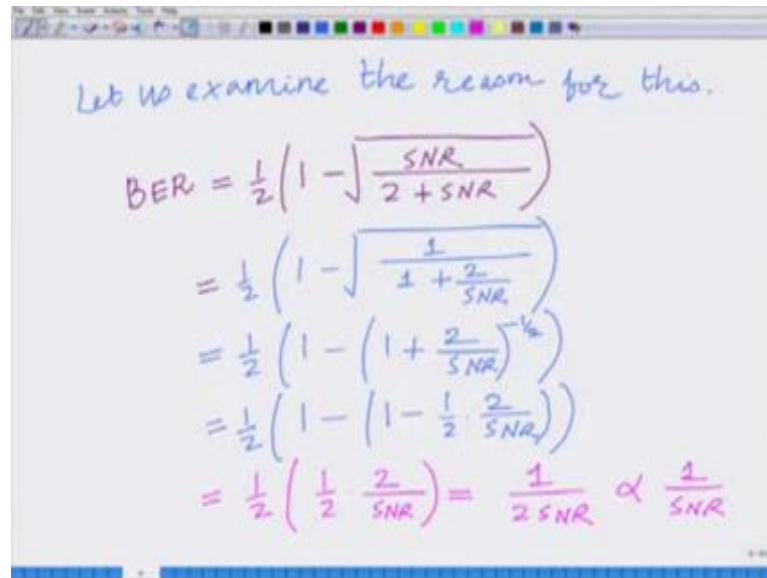 Let us examine the reason for this.
BER = 1/2 ( 1 - √( SNR / (2 + SNR) ) )
= 1/2 ( 1 - √( 1 / (1 + 2/SNR) ) )
= 1/2 ( 1 - ( 1 + 2/SNR )^(-1/2) )
= 1/2 ( 1 - ( 1 - 1/2 · 2/SNR ) )
= 1/2 ( 1/2 · 2/SNR ) = 1 / (2 SNR) ∝ 1/SNR